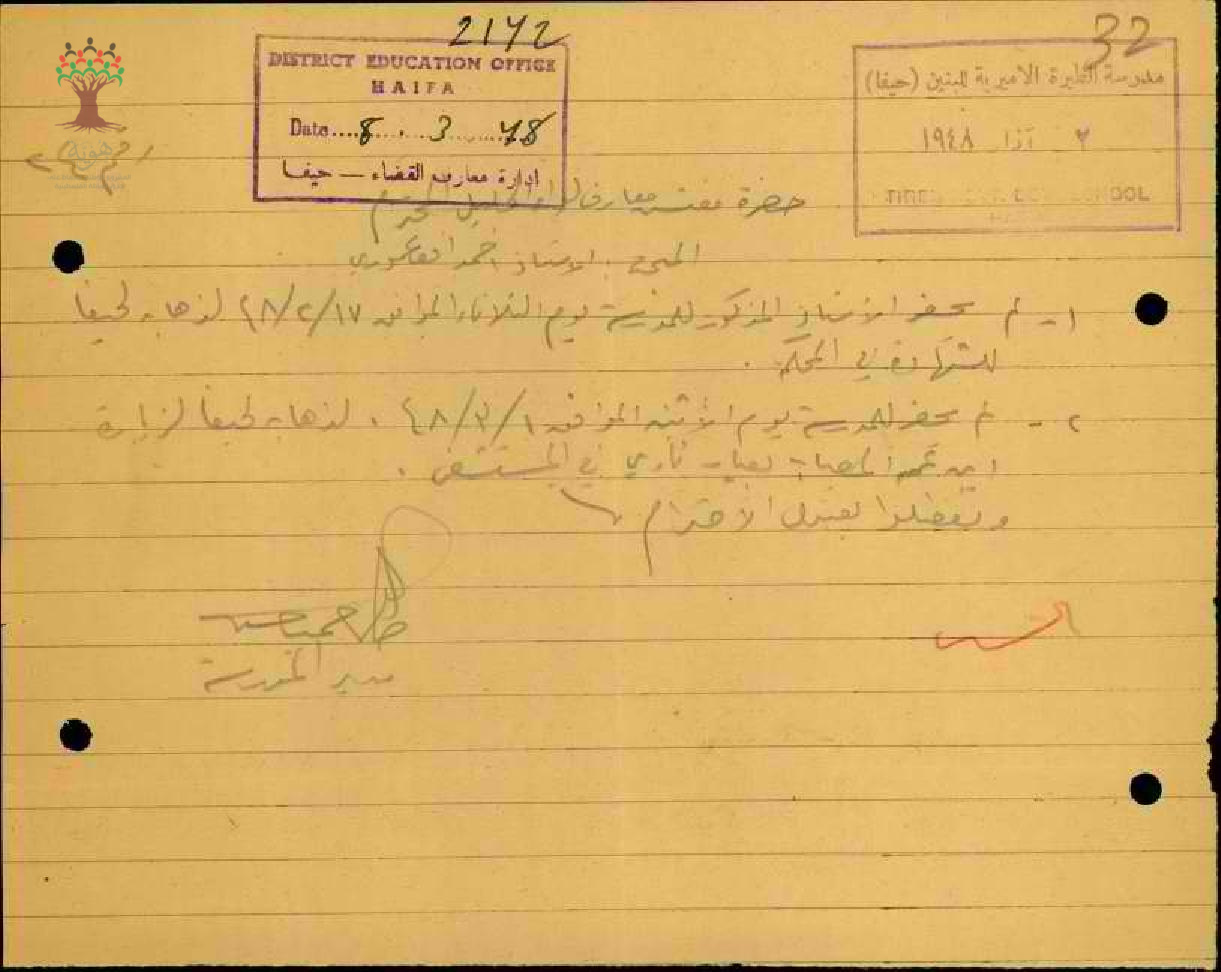 2142
32
DISTRICT EDUCATION OFFICE
HAIFA
Date....8...3......48
ادارة معارف القضاء — حيفا
مدرسة الطيرة الاميرية للبنين (حيفا)
٢ آذار ١٩٤٨
SCHOOL
هوية
حضرة مفتش معارف لواء الجليل المحترم
الاستاذ احمد
١- لم يحضر الاستاذ المذكور للمدرسة يوم الثلاثاء الموافق ١٧/٢/٤٨ لذهابه لحيفا
للشهادة في المحكمة.
٢- لم يحضر للمدرسة يوم الاثنين الموافق ١/٣/٤٨ لذهابه لحيفا لزيارة
ابن عمه المصاب بعيار ناري في المستشفى.
وتفضلوا بقبول الاحترام
مدير المدرسة